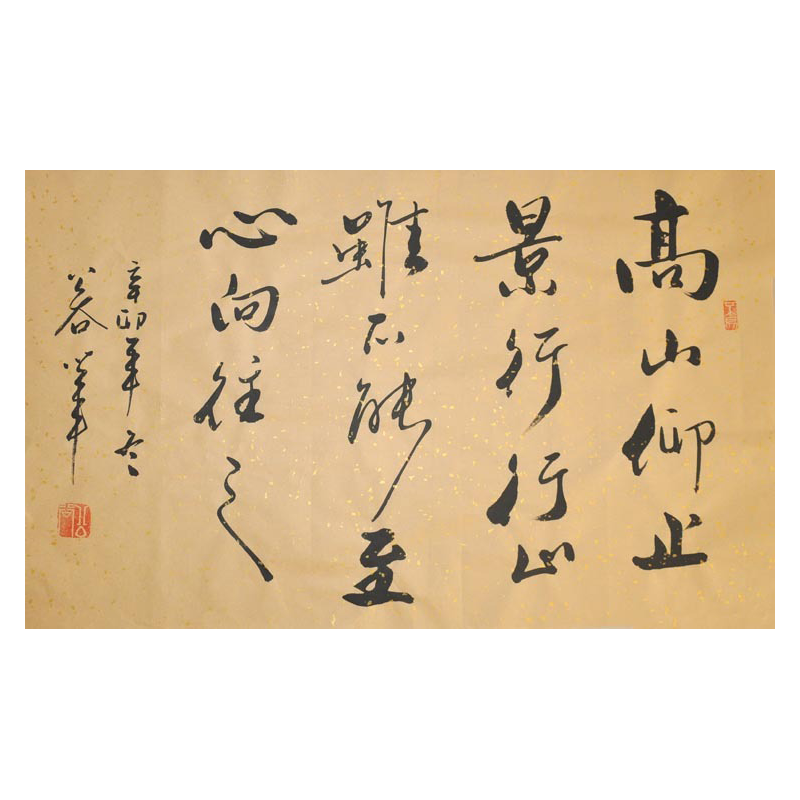 高山仰止
景行行止
雖不能至
心向往之
辛卯年冬